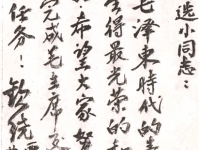 选小同志：
毛泽東時代的青
生得最光荣的
希望大家努
完成毛主席交
任务！